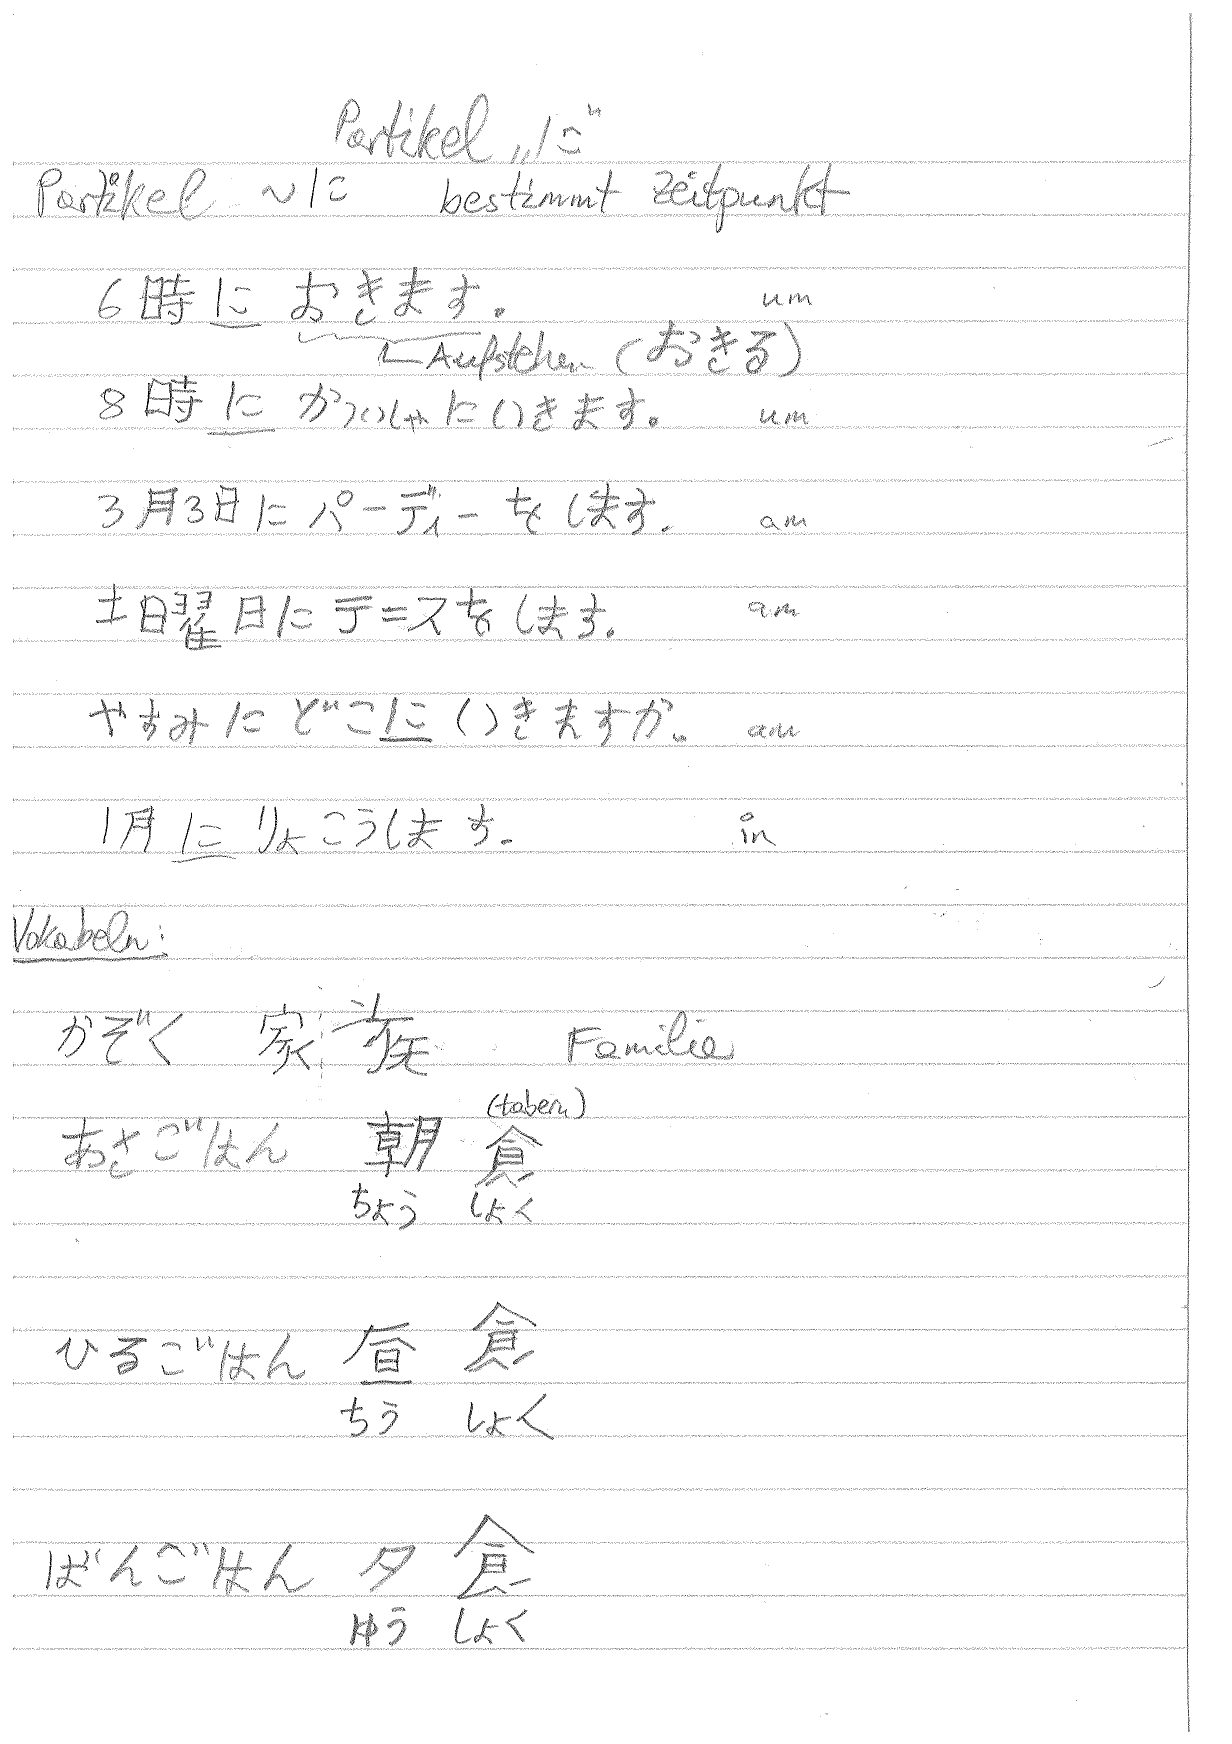 Partikel „に"
Partikel ~に bestimmt Zeitpunkt
6時に おきます。 um
Aufstehen (おきる)
8時に がっいしゃにいきます。 um
3月3日に パーディーをします。 am
土曜日にテニスをします。 am
やすみに どこに いきますか。 am
1月に りょこうします。 in
Vokabeln:
かぞく 家族 Familie
(taberu)
あさごはん 朝食
ちょう しょく
ひるごはん 昼食
ちう しょく
ばんごはん 夕食
ゆう しょく